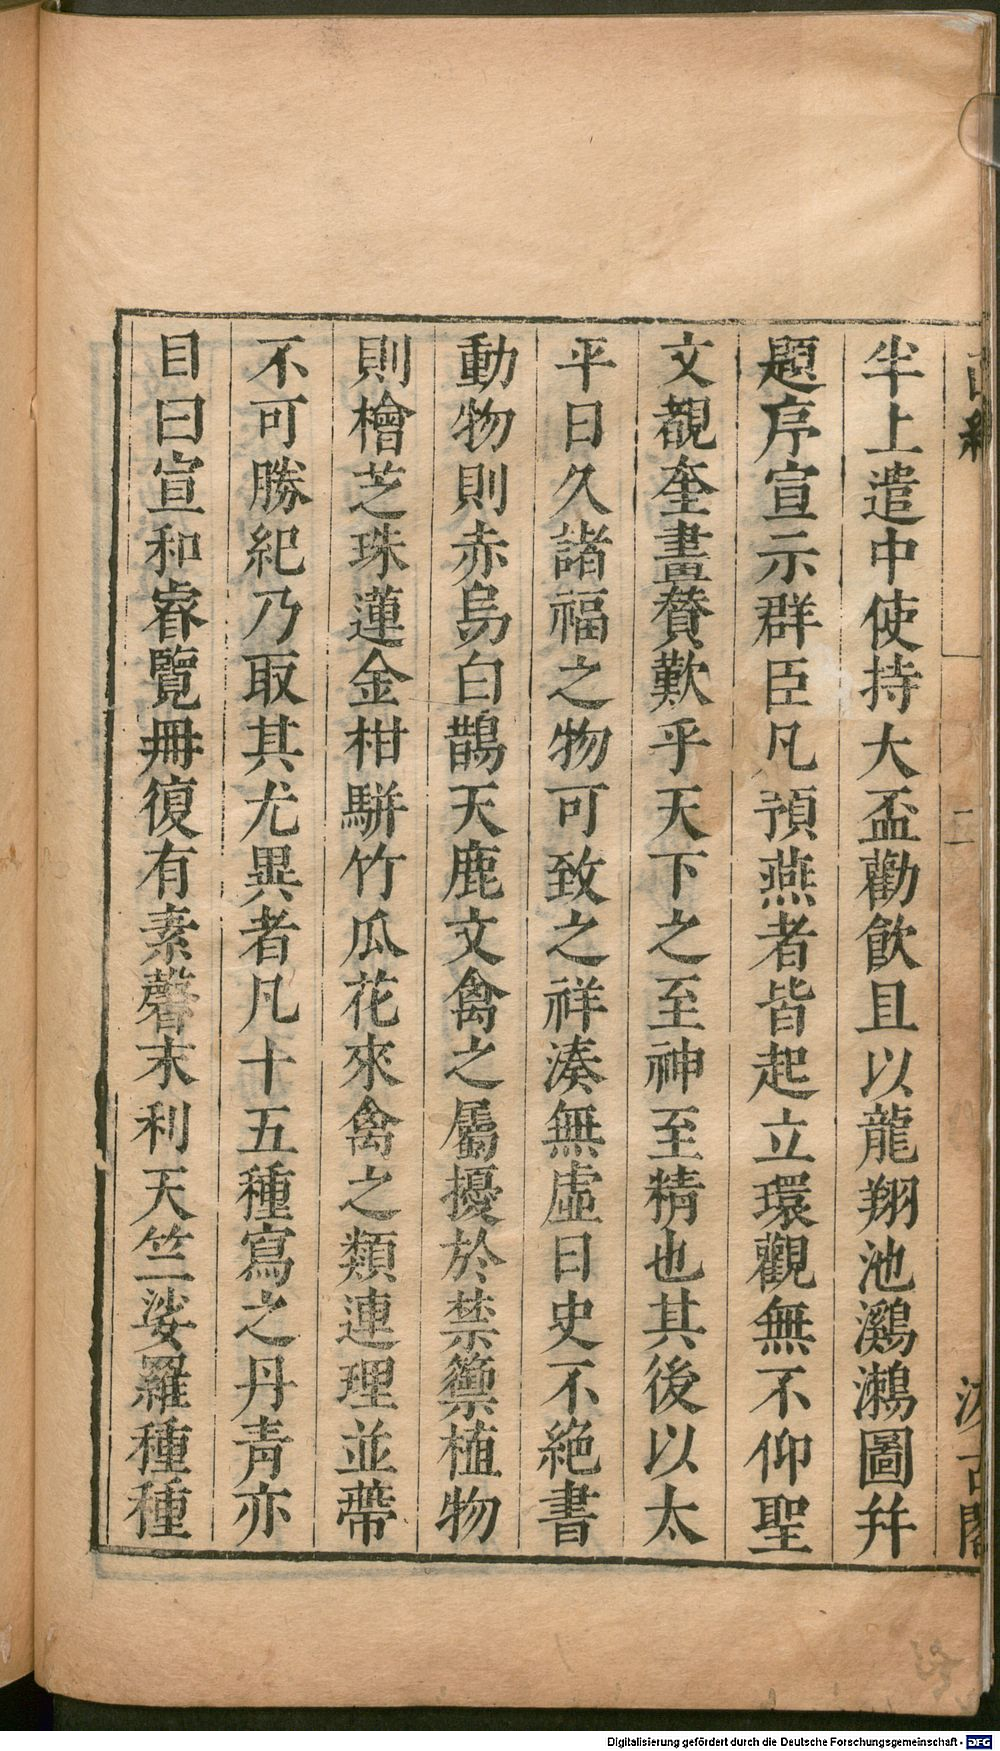 半上遣中使持大盃勸飲且以龍翔池鸂鶒圖幷
題序宣示群臣凡預燕者皆起立環觀無不仰聖
文覩奎畫賛歎乎天下之至神至精也其後以太
平日久諸福之物可致之祥湊無虛日史不絕書
動物則赤烏白鵲天鹿文禽之屬擾於禁籞植物
則檜芝珠蓮金柑駢竹瓜花來禽之類連理並蔕
不可勝紀乃取其尤異者凡十五種寫之丹青亦
目曰宣和睿覽冊復有素馨末利天竺娑羅種種
二
汲古閣
Digitalisierung gefördert durch die Deutsche Forschungsgemeinschaft - DFG